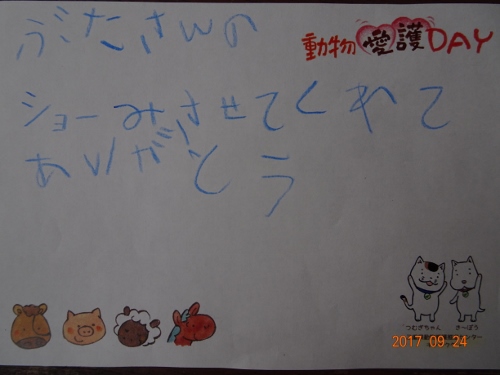 ぶたさんの
動物愛護DAY
ショーみさせてくれて
ありがとう
つむぎちゃん
きーぼう
2017 09 24